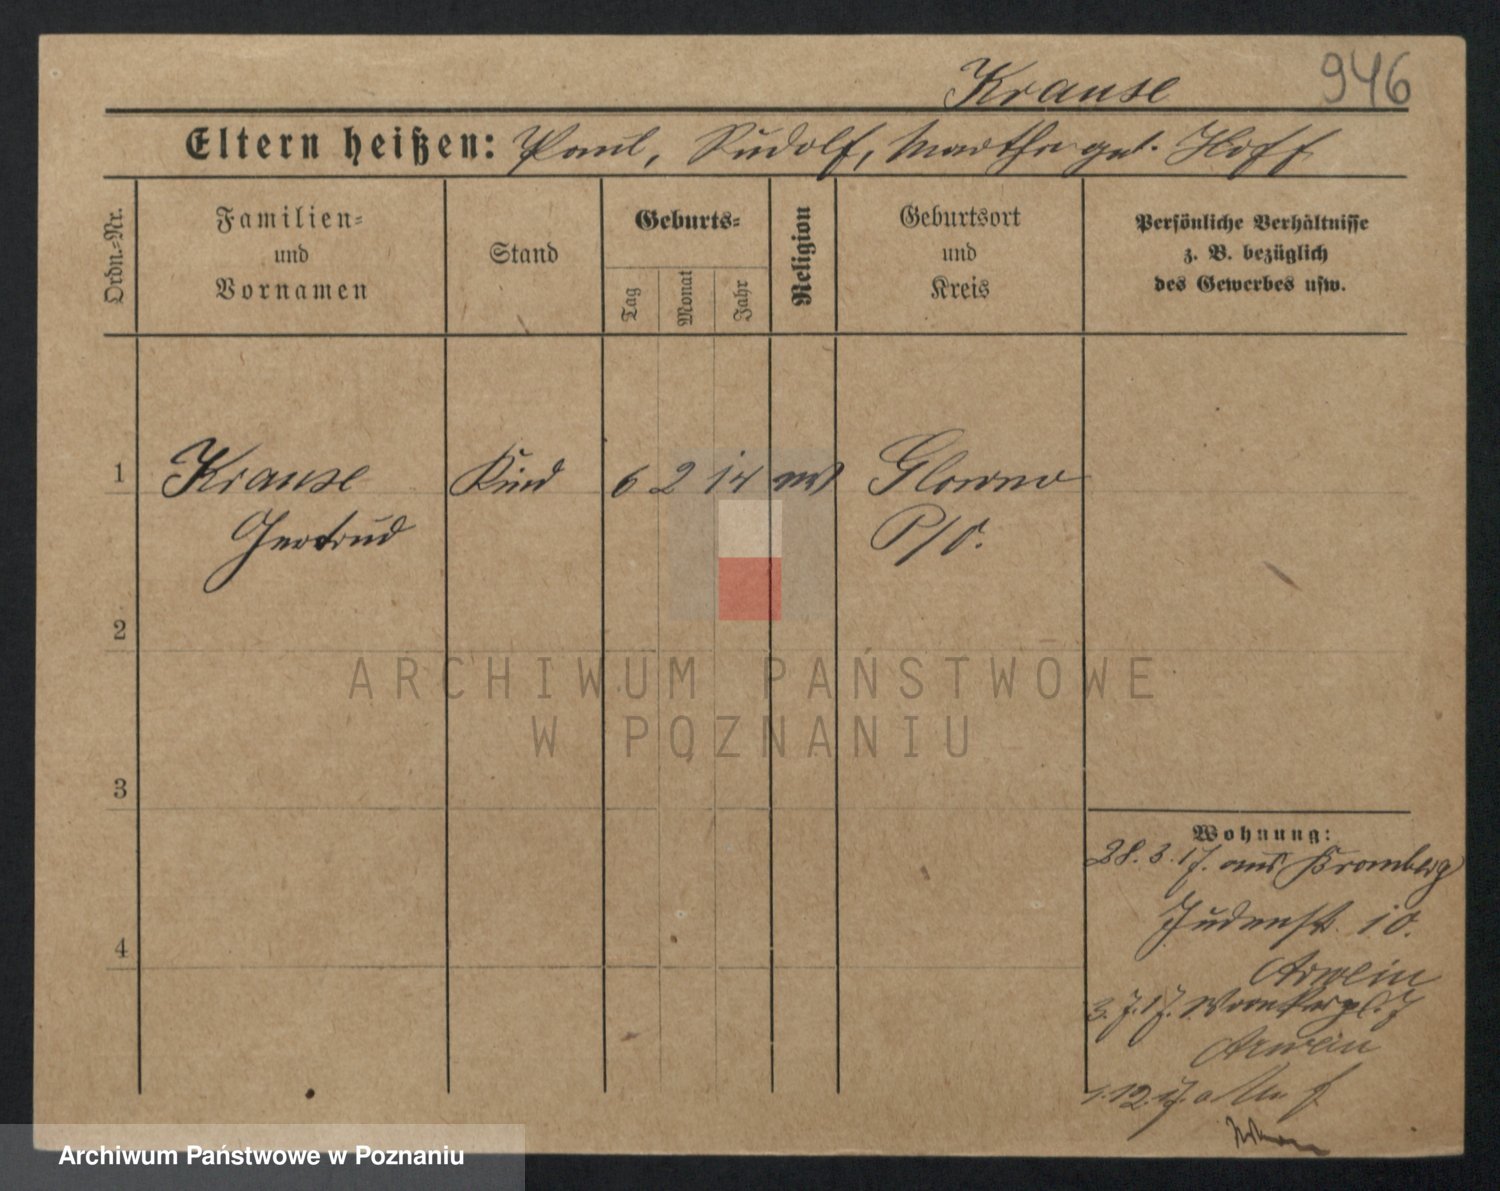 946
Krause
Eltern heißen: Paul, Rudolf, Martha geb. Hoff
Ordn.-Nr.
Familien-
und
Vornamen
Stand
Geburts-
Tag
Monat
Jahr
Religion
Geburtsort
und
Kreis
Persönliche Verhältnisse
z. B. bezüglich
des Gewerbes usw.
1 Krause Kind 6 2 14 Glowno
Gertrud P/O.
2
3
4
ARCHIWUM PAŃSTWOWE
W POZNANIU
Wohnung:
28. 3. 17. aus Bromberg
Judenstr. 10.
3. 7. 17.
1. 12. 17.
Archiwum Państwowe w Poznaniu